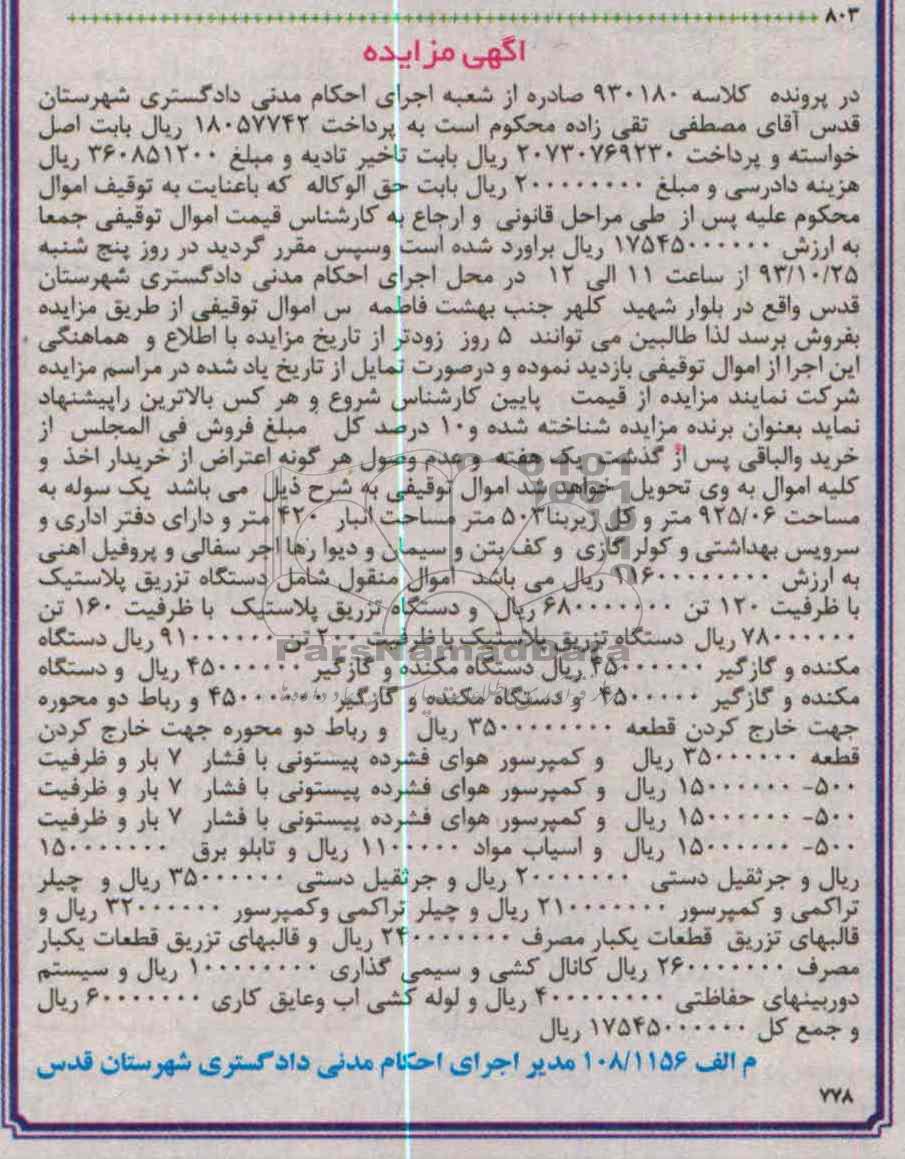 ۸۰۳
آگهی مزایده
در پرونده کلاسه ۹۳۰۱۸۰ صادره از شعبه اجرای احکام مدنی دادگستری شهرستان
قدس آقای مصطفی تقی زاده محکوم است به پرداخت ۱۸۰۵۷۷۴۲ ریال بابت اصل
خواسته و پرداخت ۲۰۷۳۰۷۶۹۲۳۰ ریال بابت تاخیر تادیه و مبلغ ۳۶۰۸۵۱۲۰۰ ریال
هزینه دادرسی و مبلغ ۲۰۰۰۰۰۰۰۰ ریال بابت حق الوکاله که باعنایت به توقیف اموال
محکوم علیه پس از طی مراحل قانونی و ارجاع به کارشناس قیمت اموال توقیفی جمعا
به ارزش ۱۷۵۴۵۰۰۰۰۰۰ ریال براورد شده است وسپس مقرر گردید در روز پنج شنبه
۹۳/۱۰/۲۵ از ساعت ۱۱ الی ۱۲ در محل اجرای احکام مدنی دادگستری شهرستان
قدس واقع در بلوار شهید کلهر جنب بهشت فاطمه س اموال توقیفی از طریق مزایده
بفروش برسد لذا طالبین می توانند ۵ روز زودتر از تاریخ مزایده با اطلاع و هماهنگی
این اجرا از اموال توقیفی بازدید نموده و درصورت تمایل از تاریخ یاد شده در مراسم مزایده
شرکت نمایند مزایده از قیمت پایین کارشناس شروع و هر کس بالاترین راپیشنهاد
نماید بعنوان برنده مزایده شناخته شده و۱۰ درصد کل مبلغ فروش فی المجلس از
خرید والباقی پس از گذشت یک هفته و عدم وصول هر گونه اعتراض از خریدار اخذ و
کلیه اموال به وی تحویل خواهد شد اموال توقیفی به شرح ذیل می باشد یک سوله به
مساحت ۹۲۵/۰۶ متر و کل زیربنا۵۰۳ متر مساحت انبار ۴۲۰ متر و دارای دفتر اداری و
سرویس بهداشتی و کولر گازی و کف بتن و سیمان و دیوا رها اجر سفالی و پروفیل اهنی
به ارزش ۱۱۶۰۰۰۰۰۰۰۰ ریال می باشد اموال منقول شامل دستگاه تزریق پلاستیک
با ظرفیت ۱۲۰ تن ۶۸۰۰۰۰۰۰۰ ریال و دستگاه تزریق پلاستیک با ظرفیت ۱۶۰ تن
۷۸۰۰۰۰۰۰۰ ریال دستگاه تزریق پلاستیک با ظرفیت ۲۰۰ تن ۹۱۰۰۰۰۰۰۰ ریال دستگاه
مکنده و گازگیر ۴۵۰۰۰۰۰۰ ریال دستگاه مکنده و گازگیر ۴۵۰۰۰۰۰۰ ریال و دستگاه
مکنده و گازگیر ۴۵۰۰۰۰۰۰ و دستگاه مکنده و گازگیر ۴۵۰۰۰۰۰۰ و رباط دو محوره
جهت خارج کردن قطعه ۳۵۰۰۰۰۰۰۰ ریال و رباط دو محوره جهت خارج کردن
قطعه ۳۵۰۰۰۰۰۰ ریال و کمپرسور هوای فشرده پیستونی با فشار ۷ بار و ظرفیت
۵۰۰- ۱۵۰۰۰۰۰۰ ریال و کمپرسور هوای فشرده پیستونی با فشار ۷ بار و ظرفیت
۵۰۰- ۱۵۰۰۰۰۰۰ ریال و کمپرسور هوای فشرده پیستونی با فشار ۷ بار و ظرفیت
۵۰۰- ۱۵۰۰۰۰۰۰ ریال و اسیاب مواد ۱۱۰۰۰۰۰۰ ریال و تابلو برق ۱۵۰۰۰۰۰۰۰
ریال و جرثقیل دستی ۲۰۰۰۰۰۰۰ ریال و جرثقیل دستی ۳۵۰۰۰۰۰۰ ریال و چیلر
تراکمی و کمپرسور ۲۱۰۰۰۰۰۰۰ ریال و چیلر تراکمی وکمپرسور ۳۲۰۰۰۰۰۰ ریال و
قالبهای تزریق قطعات یکبار مصرف ۲۴۰۰۰۰۰۰۰ ریال و قالبهای تزریق قطعات یکبار
مصرف ۲۶۰۰۰۰۰۰۰ ریال کانال کشی و سیمی گذاری ۱۰۰۰۰۰۰۰۰ ریال و سیستم
دوربینهای حفاظتی ۴۰۰۰۰۰۰۰۰ ریال و لوله کشی اب وعایق کاری ۶۰۰۰۰۰۰۰ ریال
و جمع کل ۱۷۵۴۵۰۰۰۰۰۰ ریال
م الف ۱۰۸/۱۱۵۶ مدیر اجرای احکام مدنی دادگستری شهرستان قدس
۷۷۸
ParsNamadData